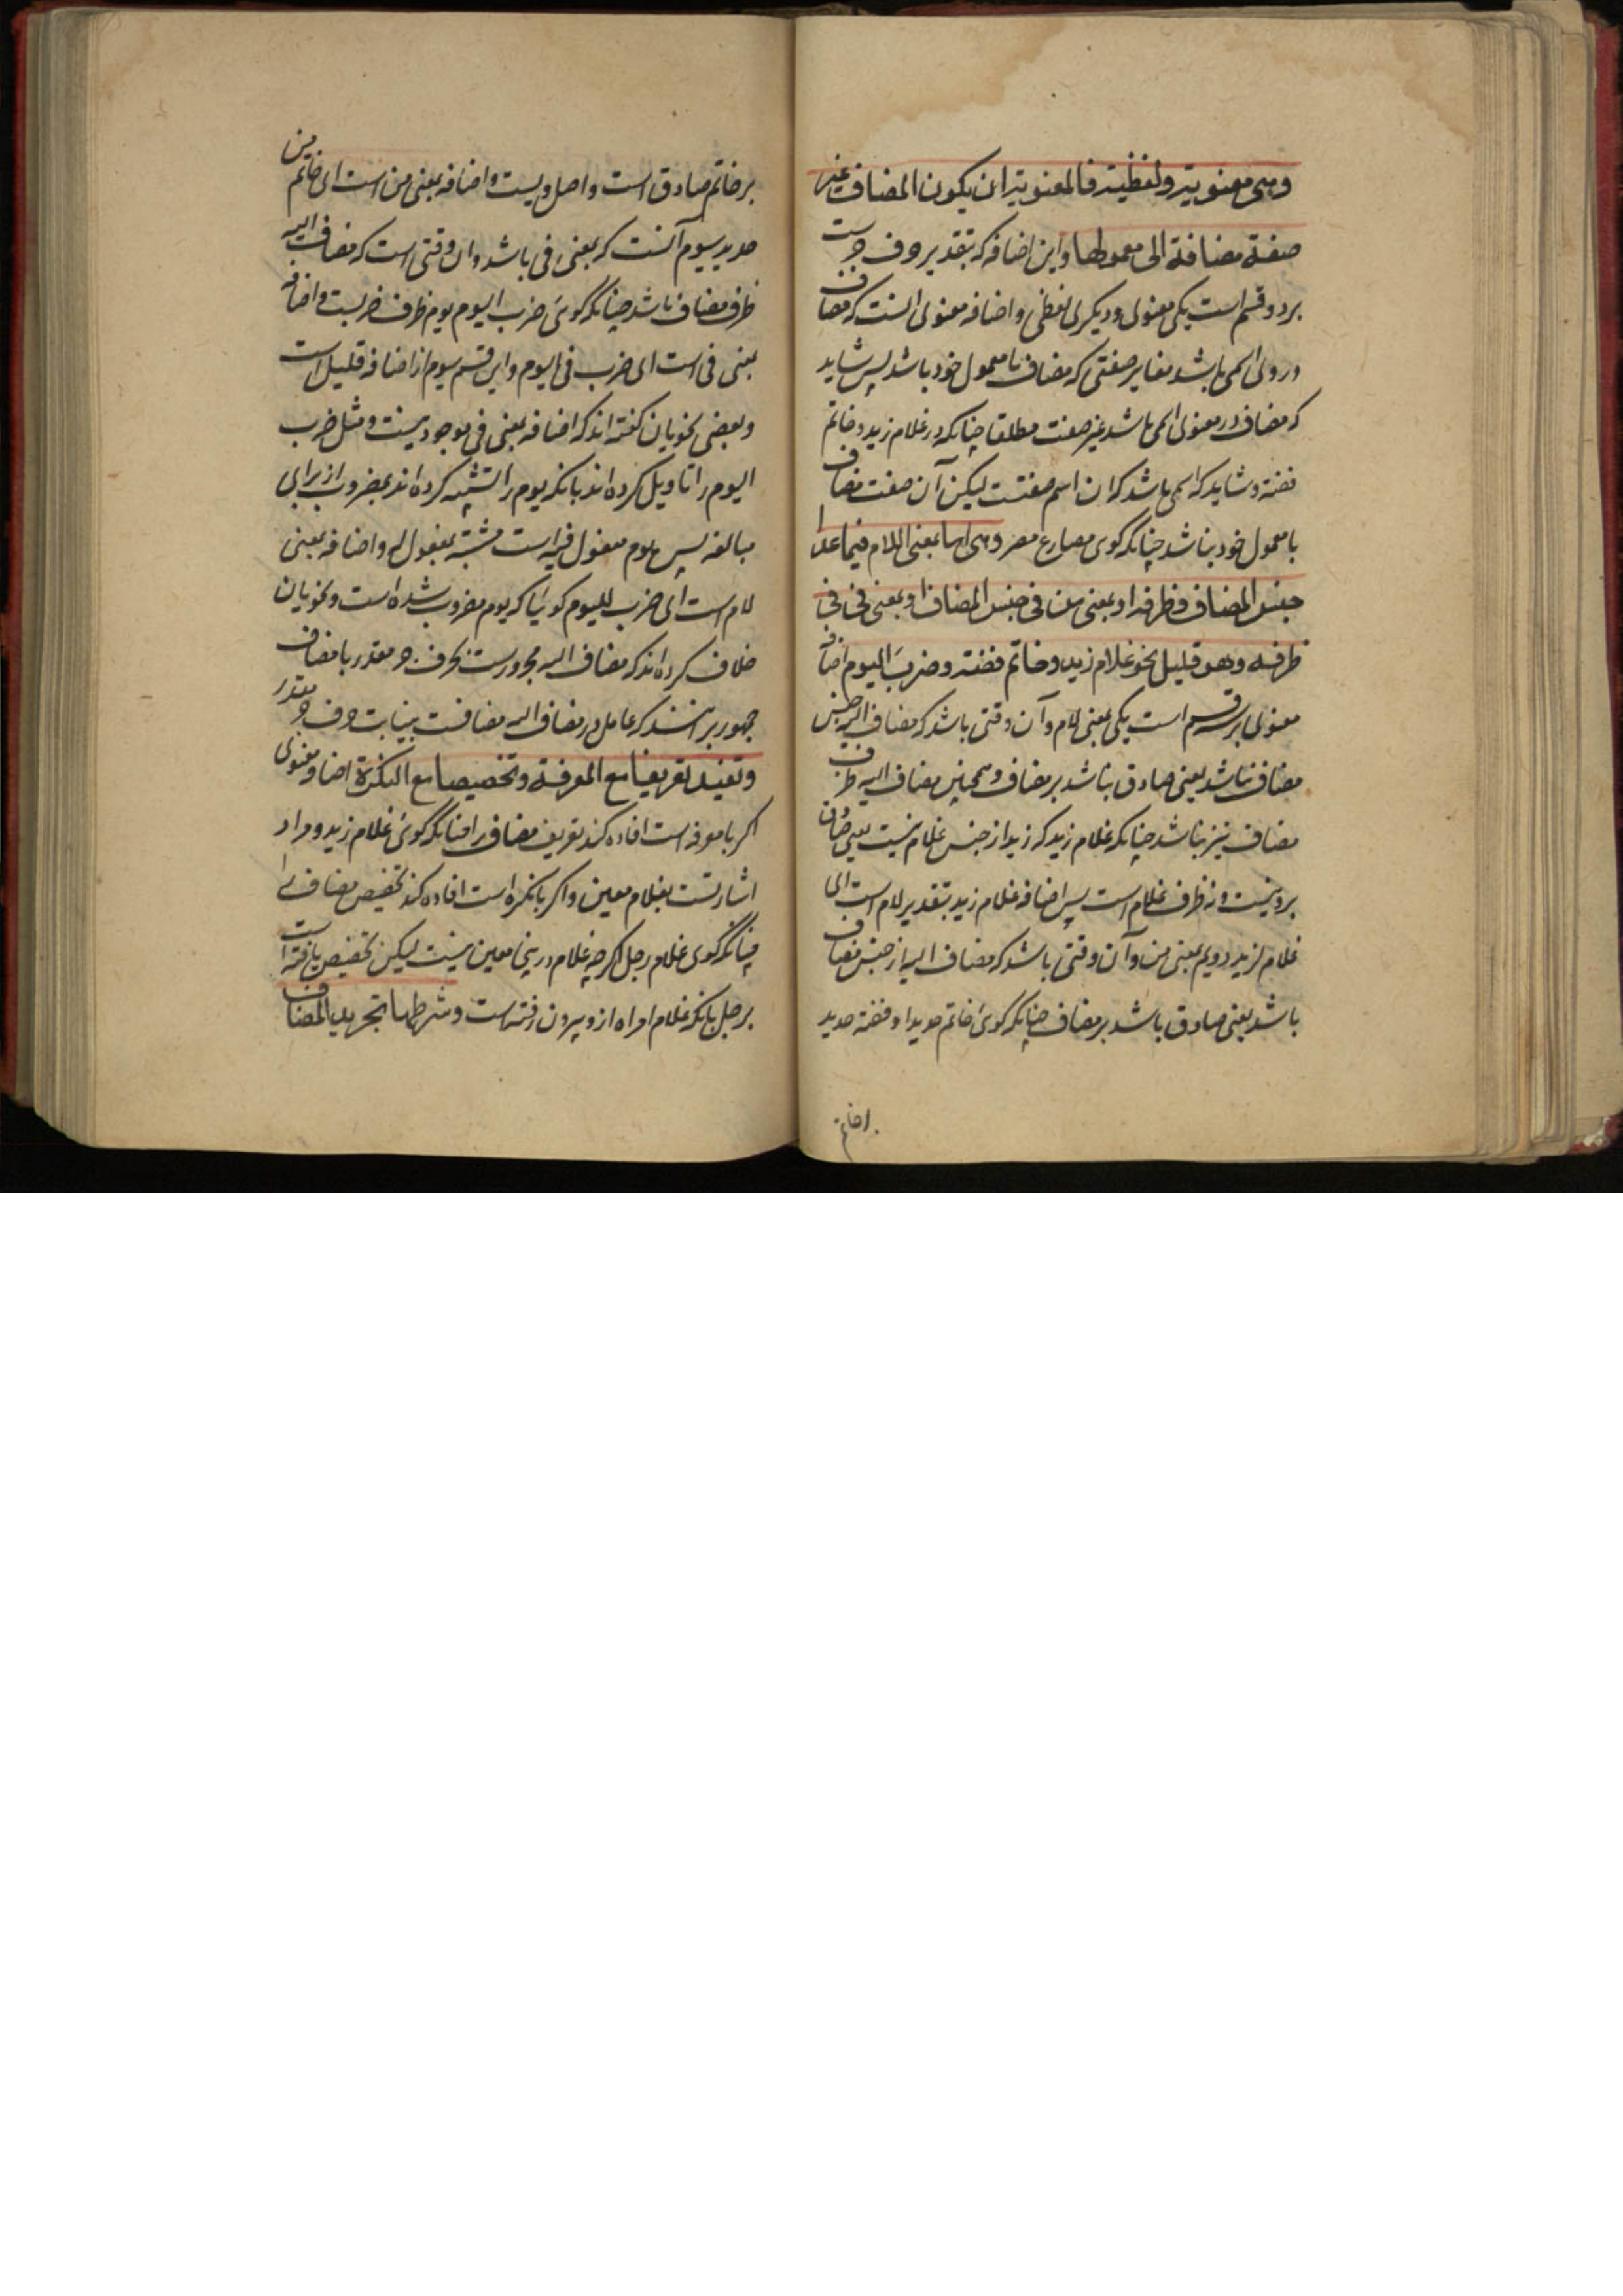 وهی معنویة ولفظیة فالمعنویة ان یکون المضاف غیر
صفة مضافة الی معمولها واین اضافه که بتقدیر حرف جرست
بر دو قسم است یکی معنوی ودیکری لفظی و اضافه معنوی انست که مضاف
دروی اسمی باشد مغایر صفتی که مضاف با معمول خود باشد پس شاید
که مضاف در معنوی اسمی باشد غیر صفت مطلقا چنانکه در غلام زید وخاتم
فضة وشاید که اسمی باشد که ان اسم صفتست لیکن آن صفت مضاف
با معمول خود نباشد چنانکه کوی مصارع مصر وهی اما بمعنی اللام فیما عدا
جنس المضاف وظرفه او بمعنی من فی جنس المضاف او بمعنی فی فی
ظرفه وهو قلیل نحو غلام زید وخاتم فضة وضرب الیوم اضافه
معنوی بر سه قسم است یکی بمعنی لام وآن وقتی باشد که مضاف الیه جنس
مضاف نباشد یعنی صادق نباشد بر مضاف وهمچنین مضاف الیه ظرف
مضاف نیز نباشد چنانکه غلام زید که زید از جنس غلام نیست یعنی صادق
برو نیست ونه ظرف غلام است پس اضافه غلام زید بتقدیر لام است ای
غلام لزید دویم بمعنی من وآن وقتی باشد که مضاف الیه از جنس مضاف
باشد یعنی صادق باشد بر مضاف چنانکه کوئ خاتم حدید او فضة حدید
بر خاتم صادق است واصل ویست واضافه بمعنی من است ای خاتم من
حدید سیوم آنست که بمعنی فی باشد وان وقتی است که مضاف الیه
ظرف مضاف باشد چنانکه کوئ ضرب الیوم یوم ظرف ضربست واضافه
بمعنی فی است ای ضرب فی الیوم واین قسم سیوم از اضافه قلیل است
وبعضی نحویان کفته اند که اضافه بمعنی فی موجود نیست ومثل ضرب
الیوم را تاویل کرده اند بانکه یوم را تشبیه کرده اند بمضروب از برای
مبالغه پس یوم مفعول فیه است مشبه بمفعول به واضافه بمعنی
لام است ای ضرب للیوم کوئیا که یوم مضروب شده است ونحویان
خلاف کرده اند که مضاف الیه مجرورست بحرف جر مقدر یا مضاف
جمهور برانند که عامل در مضاف الیه مضافست بنیابت حرف جر مقدر
وتفید تعریفا مع المعرفة وتخصیصا مع النکرة اضافه معنوی
اکر با معرفه است افاده کند تعریف مضاف را چنانکه کوئ غلام زید ومراد
اشارتست بغلام معین واکر با نکره است افاده کند تخصیص مضاف را
چنانکه کوی غلام رجل اکرچه غلام درینجا معین نیست لیکن تخصیص یافته است
برجل بانکه غلام امراه ازو بیرون رفته است وشرطها تجرید المضاف